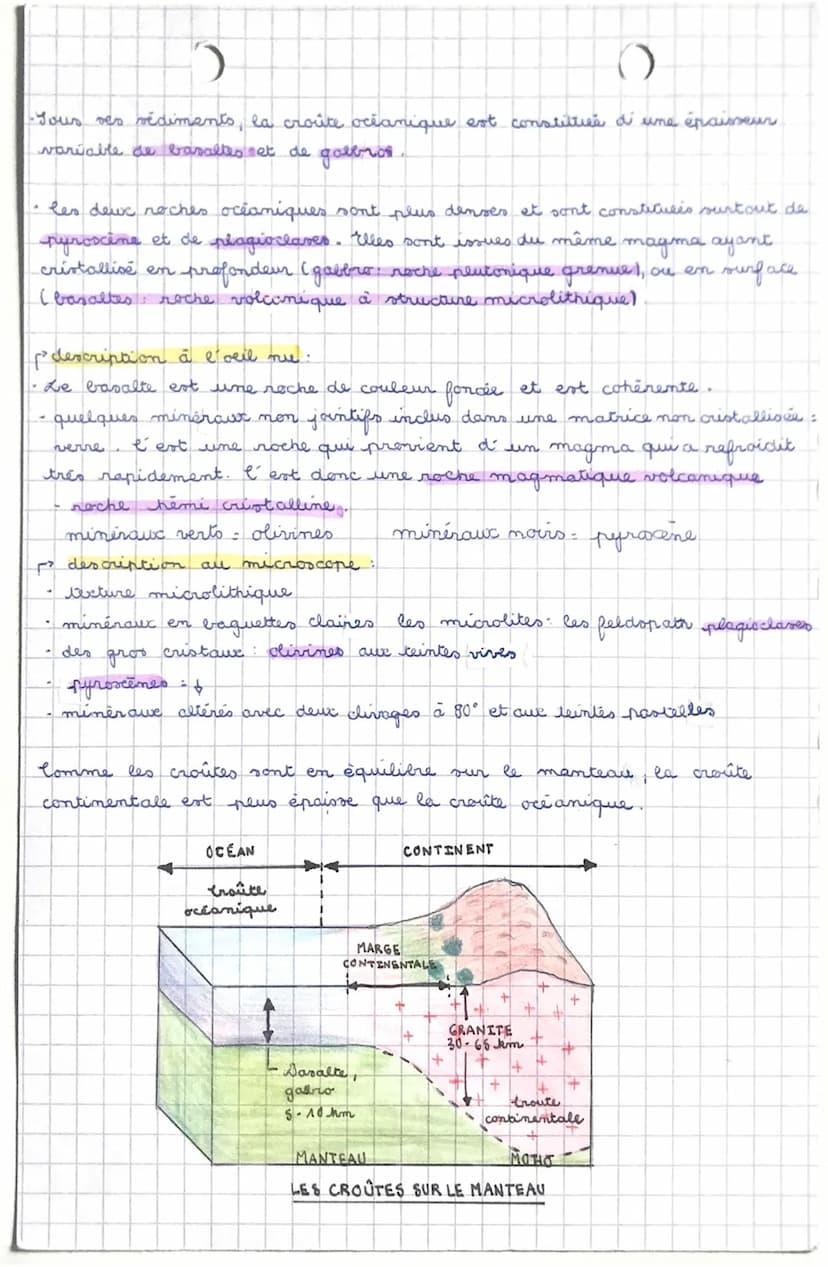 ·Sous ses sédiments, la croûte océanique est constituée d'une épaisseur
variable de basaltes et de gabbros.
· Les deux roches océaniques sont plus denses et sont constitués surtout de
pyroxène et de plagioclases. Elles sont issues du même magma ayant
cristallisé en profondeur (gabbro: roche plutonique grenue), ou en surface
(basaltes: roche volcanique à structure microlithique).
description à l'oeil nu:
· Le basalte est une roche de couleur foncée et est cohérente.
- quelques minéraux non jointifs inclus dans une matrice non cristallisée:
verre. C'est une roche qui provient d'un magma qui a refroidit
très rapidement. C'est donc une roche magmatique volcanique
- roche hémi cristalline.
minéraux verts = olivines minéraux noirs = pyroxène
description au microscope:
· texture microlithique
· minéraux en baguettes claires les microlites: les feldspath plagioclases
· des gros cristaux: olivines aux teintes vives
· pyroxènes = ↓
· minéraux altérés avec deux clivages à 90° et aux teintes pastelles
Comme les croûtes sont en équilibre sur le manteau, la croûte
continentale est plus épaisse que la croûte océanique.
OCÉAN CONTINENT
Croûte
océanique
MARGE
CONTINENTALE
GRANITE
30-65 km
Basalte,
gabro
5-10 km
Croute
continentale
MANTEAU MOHO
LES CROÛTES SUR LE MANTEAU